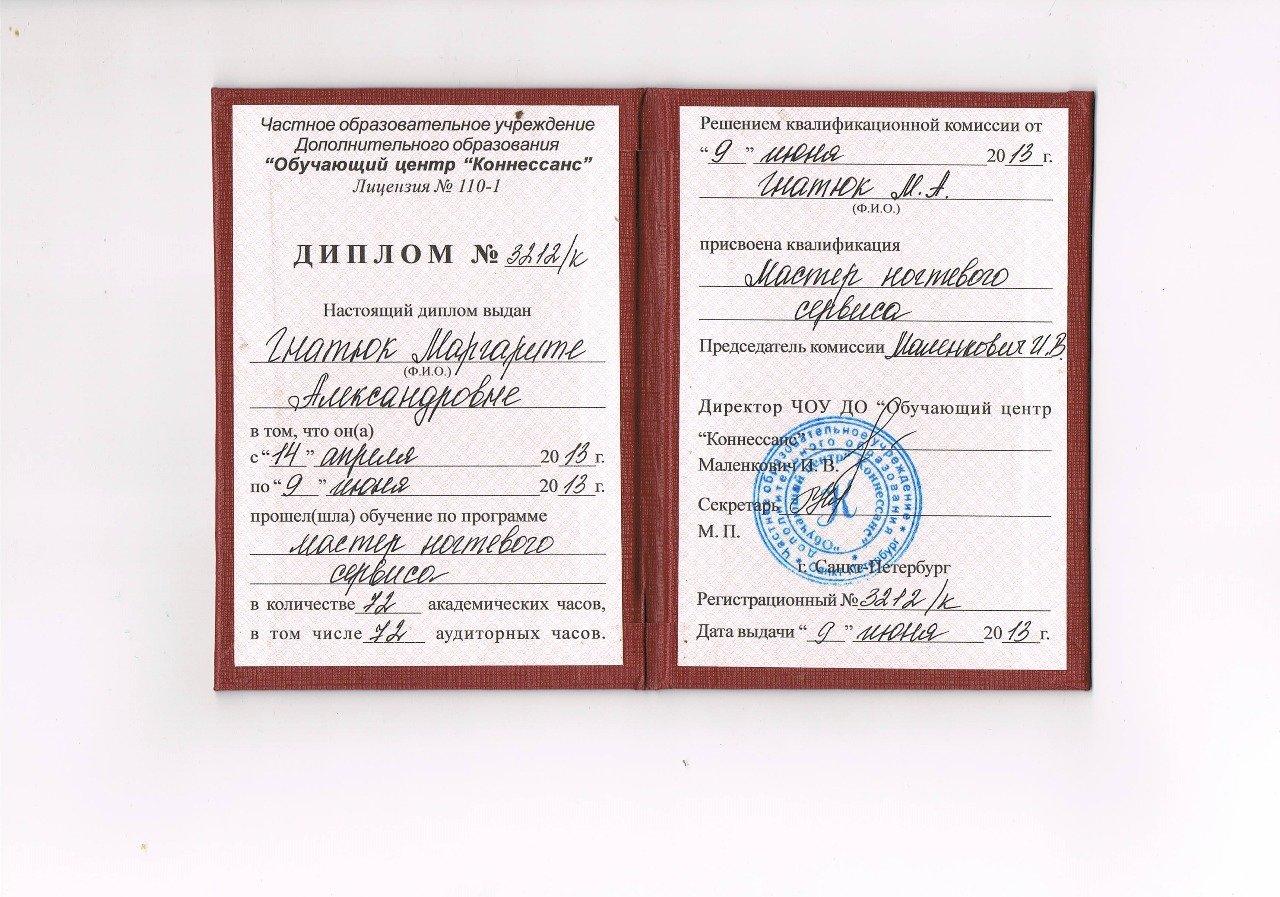 Частное образовательное учреждение
Дополнительного образования
“Обучающий центр “Коннессанс”
Лицензия № 110-1
ДИПЛОМ № 3212/к
Настоящий диплом выдан
Гнатюк Маргарите
(Ф.И.О.)
Александровне
в том, что он(а)
с “14” апреля 2013г.
по “9” июня 2013г.
прошел(шла) обучение по программе
мастер ногтевого
сервиса
в количестве 72 академических часов,
в том числе 72 аудиторных часов.
Решением квалификационной комиссии от
“9” июня 2013г.
Гнатюк М.А.
(Ф.И.О.)
присвоена квалификация
Мастер ногтевого
сервиса
Председатель комиссии Маленкович И.В.
Директор ЧОУ ДО “Обучающий центр
“Коннессанс”
Маленкович И. В.
Секретарь
М. П.
г. Санкт-Петербург
Регистрационный № 3212/к
Дата выдачи “9” июня 2013г.
Частное образовательное учреждение * Санкт-Петербург *
Дополнительного образования
“Обучающий центр “Коннессанс”
К